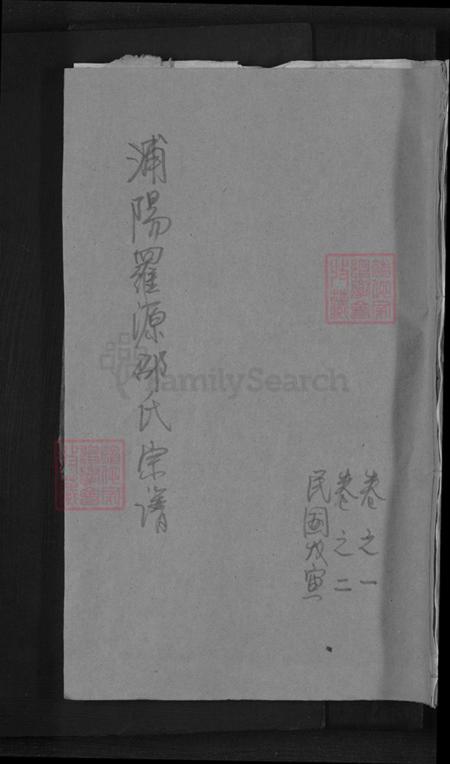 卷之一
卷之二
民國戊寅
浦陽羅源邵氏宗譜
FamilySearch